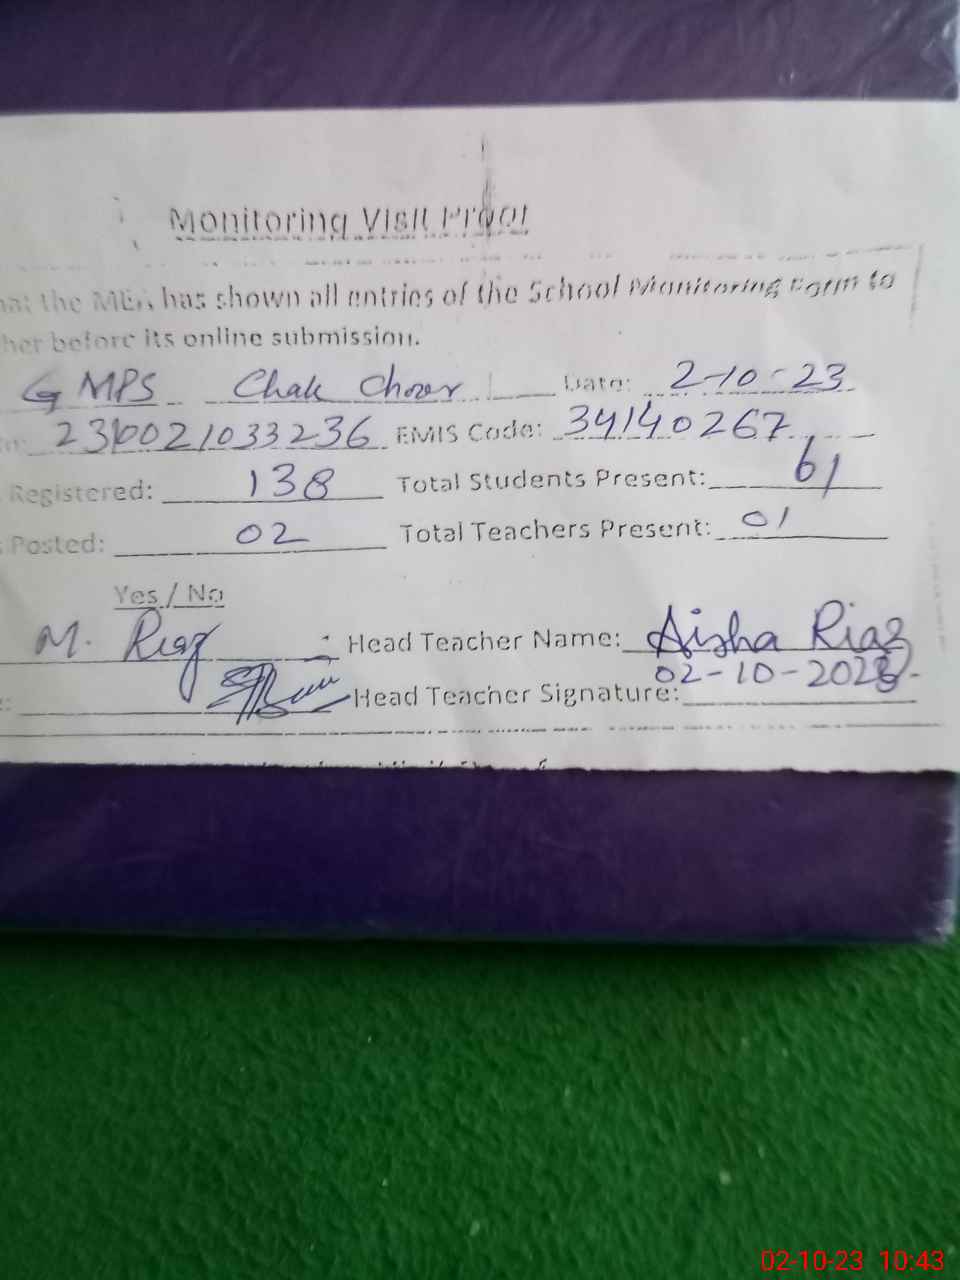 Monitoring Visit Proof
the MEA has shown all entries of the School Monitoring Form to
before its online submission.
GMPS Chak Choor Date: 2-10-23
2310021033236 EMIS Code: 34140267
Registered: 138 Total Students Present: 61
Posted: 02 Total Teachers Present: 01
Yes / No
M. Riaz Head Teacher Name: Aisha Riaz
02-10-2023
Head Teacher Signature:
02-10-23 10:43